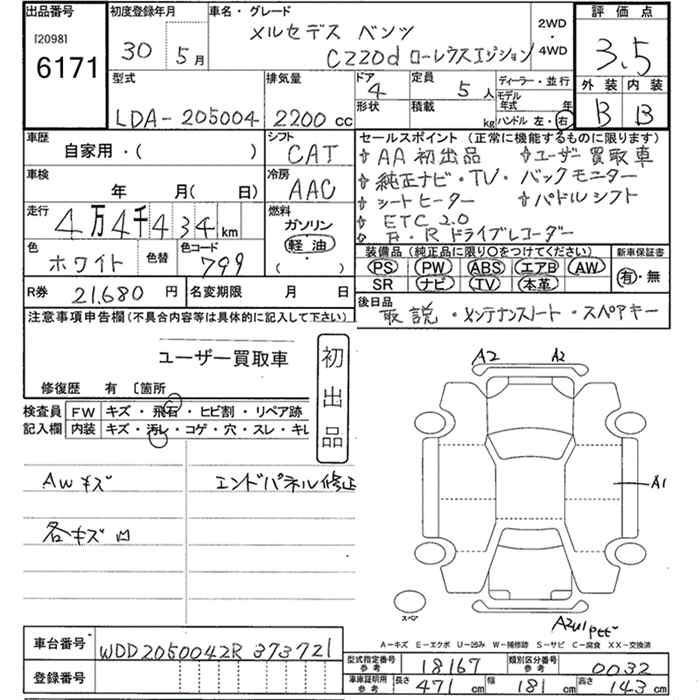 出品番号 初度登録年月 車名・グレード 2WD・4WD 評価点
[2098] 6171 30 5月 メルセデス ベンツ 3.5
C220d ローレウスエジション
型式 排気量 ドア 4 定員 5人 ディーラー・並行 外装 内装
LDA-205004 2200cc 形状 積載 kg モデル年式 年 B B
ハンドル 左・右
車歴 シフト セールスポイント (正常に機能するものに限ります)
自家用・( ) CAT ☆AA初出品 ☆ユーザー買取車
車検 冷房 ☆純正ナビ・TV・バックモニター
年 月(日) AAC ☆シートヒーター ☆パドルシフト
走行 燃料 ☆ETC 2.0
4万4千434km ガソリン F・Rドライブレコーダー
色 色替 色コード 軽油 装備品 (純正品に限り○をつけてください) 新車保証書
ホワイト 799 ( ) PS PW ABS エアB AW 有・無
SR ナビ TV 本革
R券 21,680円 名変期限 月 日 後日品
注意事項申告欄(不具合内容等は具体的に記入して下さい) 取説・メンテナンスノート・スペアキー
ユーザー買取車 初出品
修復歴 有 〔箇所
検査員 FW キズ・飛石・ヒビ割・リペア跡
記入欄 内装 キズ・汚レ・コゲ・穴・スレ・キレ
AWキズ エンドパネル修正
各キズ凹
A2 A2
A1
スペア
A2U1
A-キズ E-エクボ U-凹み W-補修跡 S-サビ C-腐食 XX-交換済
車台番号 WDD2050042R373721
型式指定番号 参考 18167 類別区分番号 参考 0032
登録番号
車庫証明用 参考 長さ 471cm 幅 181cm 高さ 143cm